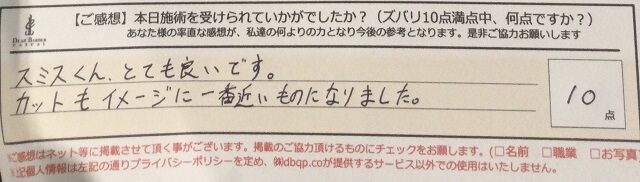 【ご感想】本日施術を受けられていかがでしたか？（ズバリ10点満点中、何点ですか？）
あなた様の率直な感想が、私達の何よりの力となり今後の参考となります。是非ご協力お願いします
DEAR BARBER
スミスくん、とても良いです。
カットもイメージに一番近いものになりました。
10
点
※ご感想はネット等に掲載させて頂く事がございます。掲載のご協力頂けるものにチェックをお願します。(□名前 □職業 □お写真
※上記個人情報は左記の通りプライバシーポリシーを定め、㈱dbqp.coが提供するサービス以外での使用はいたしません。